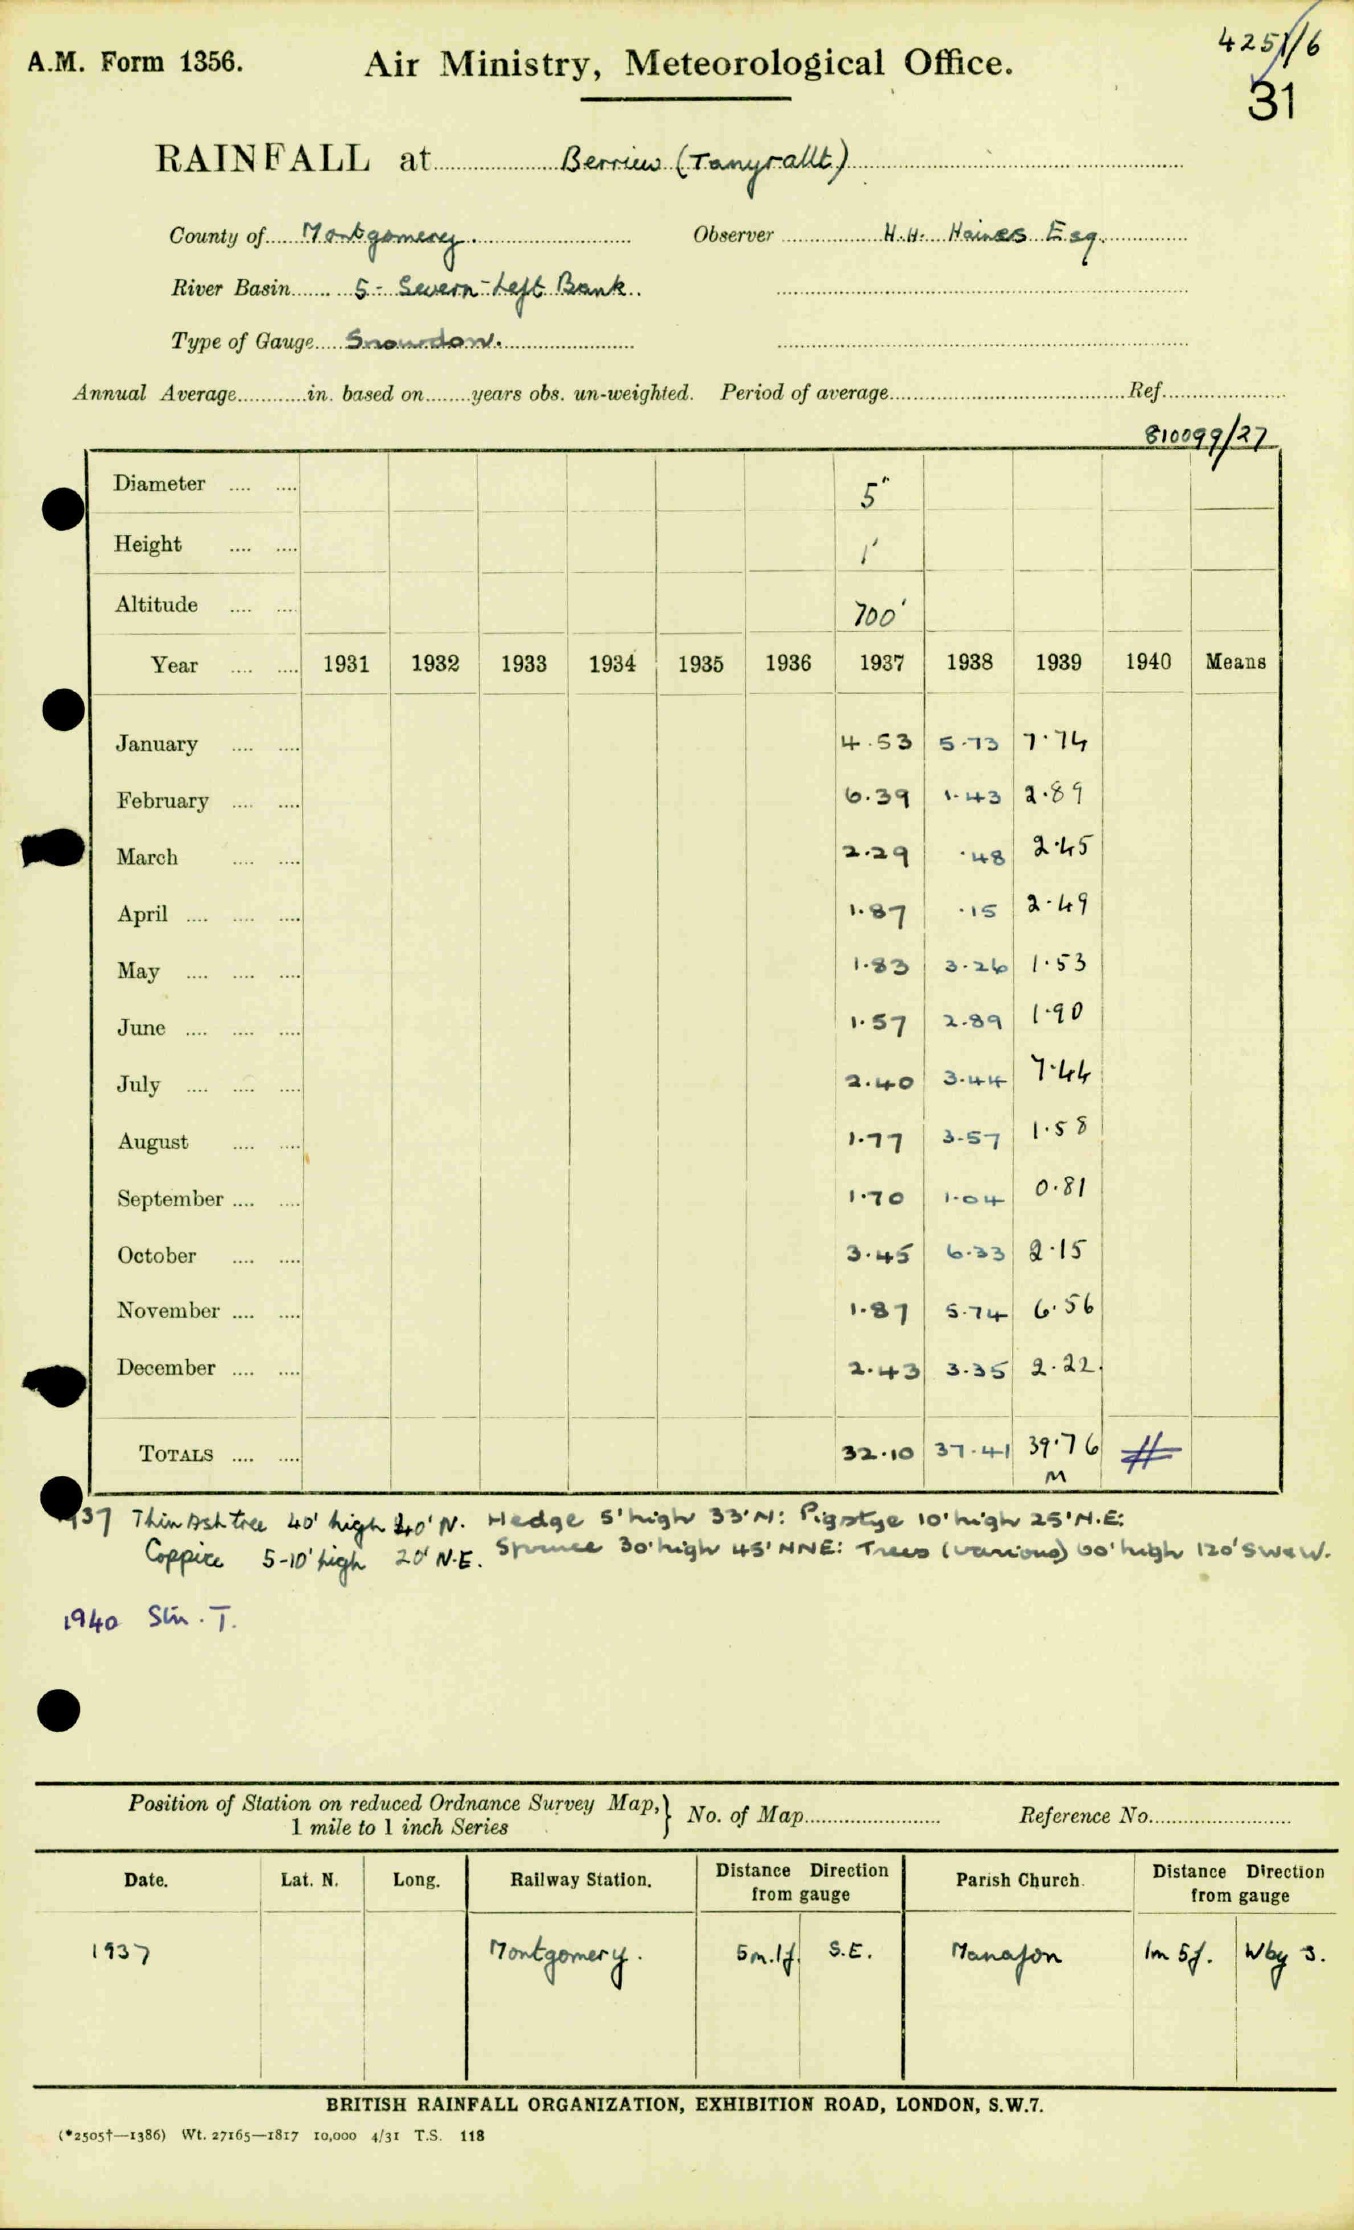 A.M. Form 1356. Air Ministry, Meteorological Office. 4251/6
31
RAINFALL at Berriew (Tanyrallt)
County of Montgomery. Observer H.H. Haines Esq.
River Basin 5 - Severn - Left Bank.
Type of Gauge Snowdon.
Annual Average in. based on years obs. un-weighted. Period of average Ref.
810099/27
Diameter 5"
Height 1'
Altitude 700'
Year 1931 1932 1933 1934 1935 1936 1937 1938 1939 1940 Means
January 4.53 5.73 7.74
February 6.39 1.43 2.89
March 2.29 .48 2.45
April 1.87 .15 2.49
May 1.83 3.26 1.53
June 1.57 2.89 1.90
July 2.40 3.44 7.44
August 1.77 3.57 1.58
September 1.70 1.04 0.81
October 3.45 6.33 2.15
November 1.87 5.74 6.56
December 2.43 3.35 2.22.
TOTALS 32.10 37.41 39.76 #
M
937 Thin Ash tree 40' high 40' N. Hedge 5' high 33' N: Pigstye 10' high 25' N.E:
Coppice 5-10' high 20' N.E. Spruce 30' high 45' NNE: Trees (various) 60' high 120' SW&W.
1940 Stn. T.
Position of Station on reduced Ordnance Survey Map, } No. of Map Reference No.
1 mile to 1 inch Series
Date. Lat. N. Long. Railway Station. Distance Direction from gauge Parish Church. Distance Direction from gauge
1937 Montgomery. 5m.1f. S.E. Manafon 1m 5f. W by S.
BRITISH RAINFALL ORGANIZATION, EXHIBITION ROAD, LONDON, S.W.7.
(*2505†—1386) Wt. 27165—1817 10,000 4/31 T.S. 118